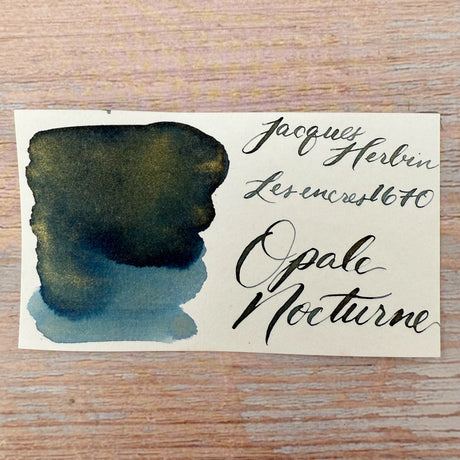 Jacques
Herbin
Les encres 1670
Opale
Nocturne